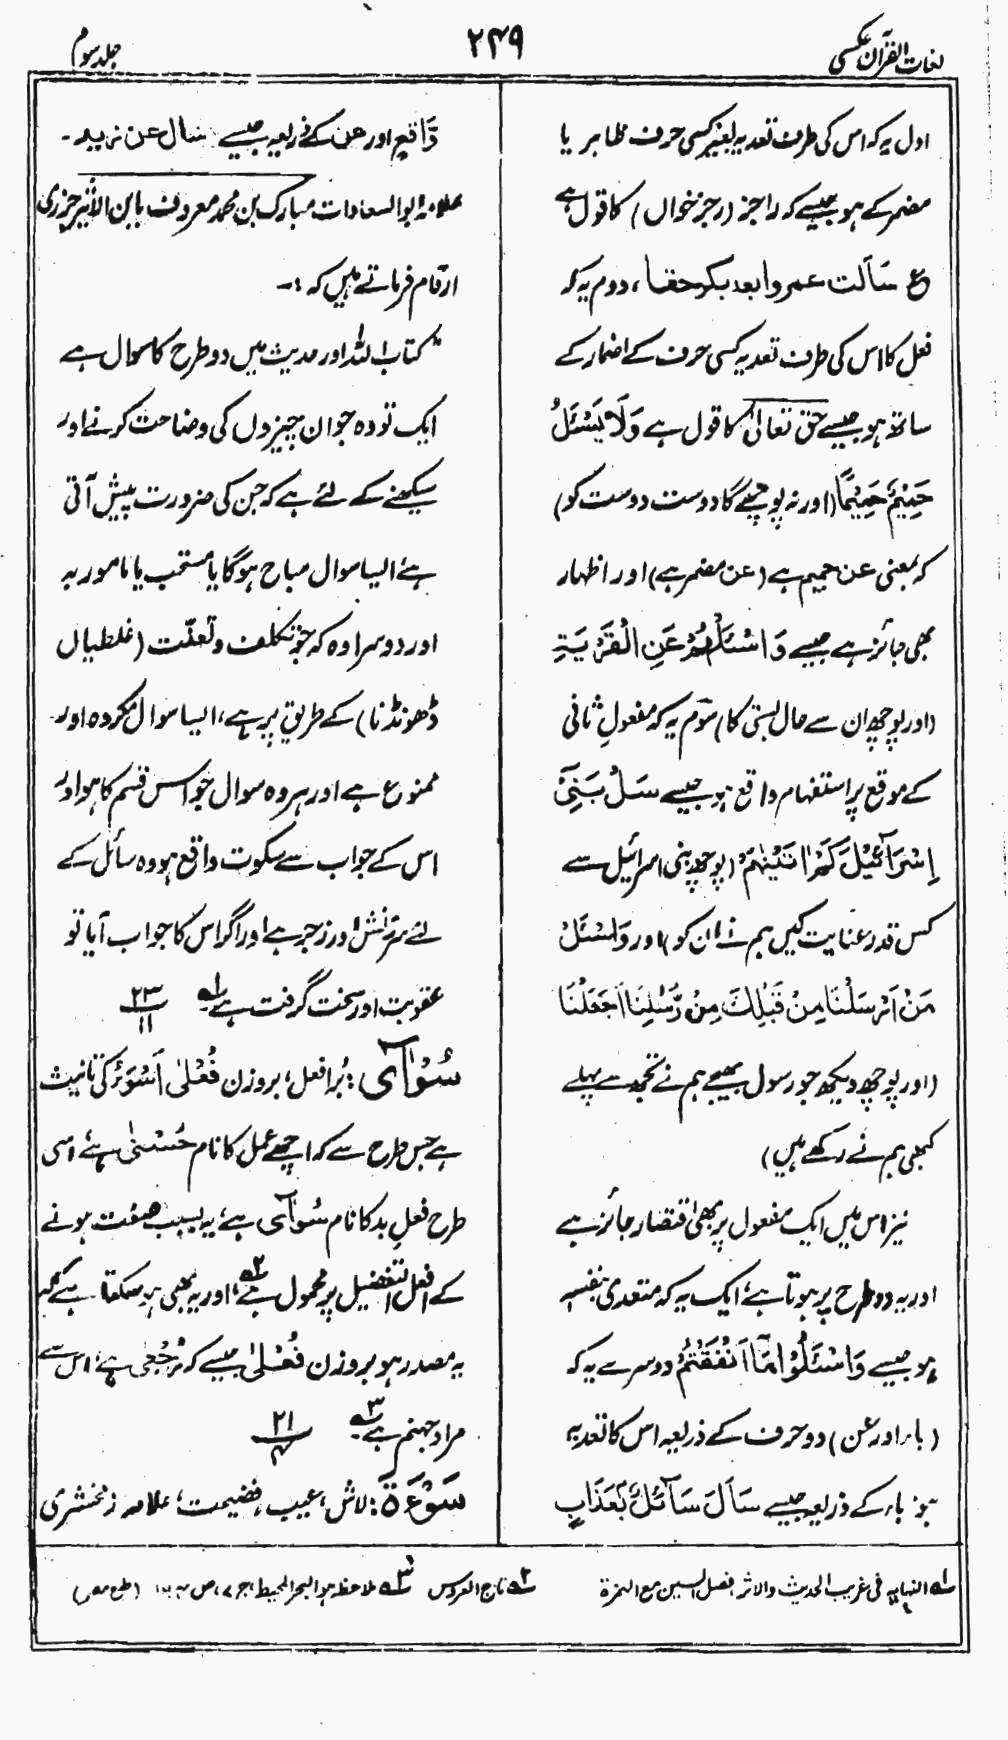 لغات القرآن عکسی
۲۴۹
جلد سوم
اول یہ کہ اس کی طرف تعدیہ بغیر کسی حرف ظاہر یا
مضمر کے ہو جیسے کہ راجز (رجز خواں) کا قول ہے
ع سَاَلت عمروا بعد بکر حقا، دوم یہ کہ
فعل کا اس کی طرف تعدیہ کسی حرف کے اضمار کے
ساتھ ہو جیسے حق تعالیٰ کا قول ہے وَلَا یَسْئَلُ
حَمِیْمٌ حَمِیْمًا (اور نہ پوچھے گا دوست دوست کو)
کہ بمعنی عن حمیم ہے (عن مضمر ہے) اور اظہار
بھی جائز ہے جیسے وَاسْئَلْهُمْ عَنِ الْقَرْیَةِ
(اور پوچھ ان سے حال بستی کا) سوم یہ کہ مفعولِ ثانی
کے موقع پر استفہام واقع ہو جیسے سَلْ بَنِیْٓ
اِسْرَآئِیْلَ کَمْ اٰتَیْنٰهُمْ (پوچھ بنی اسرائیل سے
کس قدر عنایت کیں ہم نے ان کو) اور وَاسْئَلْ
مَنْ اَرْسَلْنَا مِنْ قَبْلِكَ مِنْ رُّسُلِنَا اَجَعَلْنَا
(اور پوچھ دیکھ جو رسول بھیجے ہم نے تجھ سے پہلے
کبھی ہم نے رکھے ہیں)
نیز اس میں ایک مفعول پر بھی اقتصار جائز ہے
اور یہ دو طرح پر ہوتا ہے، ایک یہ کہ متعدی بنفسہ
ہو جیسے وَاسْئَلُوْا مَآ اَنْفَقْتُمْ دوسرے یہ کہ
(باء اور عن) دو حرف کے ذریعہ اس کا تعدیہ
ہو باء کے ذریعہ جیسے سَاَلَ سَآئِلٌ بِعَذَابٍ
وَّاقِعٍ اور عن کے ذریعہ جیسے سال عن زید۔
علامہ ابو السعادات مبارک بن محمد معروف بابن الاثیر جزری
ارقام فرماتے ہیں کہ :۔
"کتاب اللہ اور حدیث میں دو طرح کا سوال ہے
ایک تو وہ جو ان چیزوں کی وضاحت کرنے اور
سیکھنے کے لئے ہے کہ جن کی ضرورت پیش آتی
ہے، ایسا سوال مباح ہوگا یا مستحب یا مامور بہ
اور دوسرا وہ کہ جو تکلف و تعنّت (غلطیاں
ڈھونڈنا) کے طریق پر ہے، ایسا سوال مکروہ اور
ممنوع ہے اور ہر وہ سوال جو اس قسم کا ہو اور
اس کے جواب سے سکوت واقع ہو وہ سائل کے
لئے سرزنش اور زجر ہے اور اگر اس کا جواب آیا تو
عقوبت اور سخت گرفت ہے۔ ۱ ۲۳/۱۱
سُوْآٰی : بُرا فعل، بروزن فُعْلٰی اَسْوَءُ کی تانیث
ہے جس طرح سے کہ اچھے عمل کا نام حُسْنٰی ہے، اسی
طرح فعلِ بد کا نام سُوآٰی ہے، یہ بسبب صفت ہونے
کے افعل التفضیل پر محمول ہے ۲، اور یہ بھی ہو سکتا ہے کہ
یہ مصدر ہو بروزن فُعْلٰی جیسے کہ رُجْعٰی ہے، اس سے
مراد جہنم ہے۔ ۳ ۲۱/۴
سَوْءَة : لاش، عیب، فضیحت، علامہ زمخشری
۱ النہایہ فی غریب الحدیث والاثر، فصل السین مع الہمزة ۲ تاج العروس ۳ ملاحظہ ہو البحر المحیط، ج ۷، ص (طبع مصر)